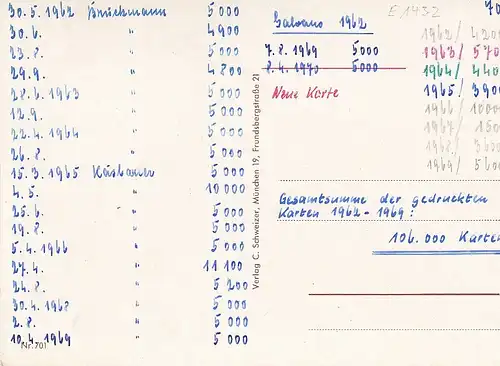 30.5.1962 Bruckmann 5000
30.6. " 4900
23.8. " 5000
29.9. " 4800
28.6.1963 " 5000
12.9. " 5000
22.4.1964 " 5000
26.8. " 5000
15.3.1965 Kasbauer 5000
4.5. " 10000
25.6. " 5000
19.8. " 5000
5.4.1966 " 5000
27.4. " 11100
24.8. " 5200
30.4.1968 " 5000
2.8. " 5000
10.4.1969 " 5000
Nr. 701
Verlag C. Schweizer, München 19, Frundsbergstraße 21
E 1432
70
Galvano 1962
7.8.1969 5000
8.4.1970 5000
Neue Karte
1962/ 420
1963/ 570
1964/ 440
1965/ 390
1966/
1967/ 150
1968/ 360
1969/ 56
Gesamtsumme der gedruckten
Karten 1962-1969:
106.000 Karten